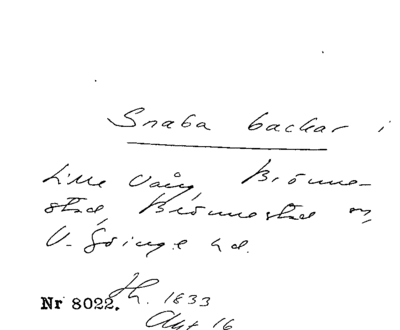 Snaba backar i
Lille Vång, Brönne-
stad, Brönnestad sn,
V. Göinge hd.
Nr 8022. Jh. 1833
Akt 16